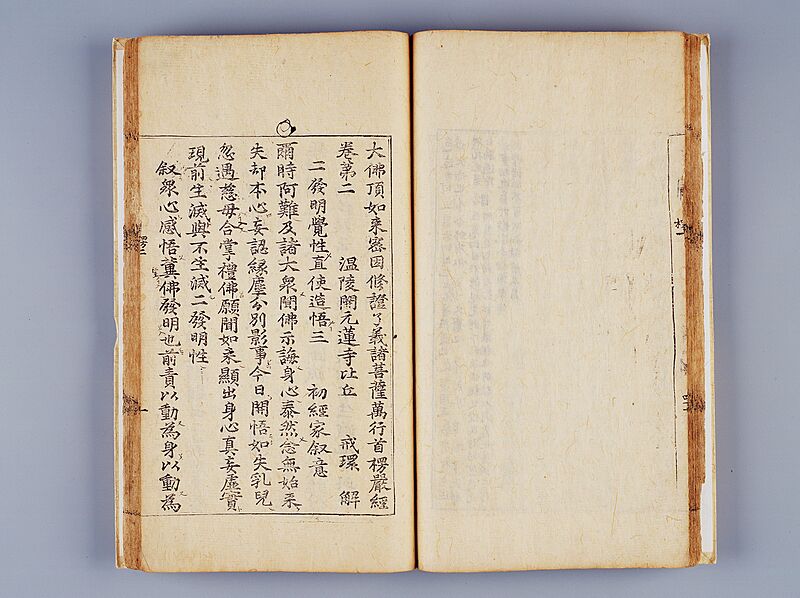 大佛頂如来密因修證了義諸菩薩萬行首楞嚴經
卷第二 温陵開元蓮寺比丘 戒環 解
二發明覺性直使造悟三 初經家叙意
爾時阿難及諸大衆聞佛示誨身心泰然念無始来
失却本心妄認緣塵分別影事今日開悟如失乳兒
忽遇慈母合掌禮佛願聞如来顯出身心真妄虛實
現前生滅與不生滅二發明性
叙衆心感悟冀佛發明也前責以動為身以動為